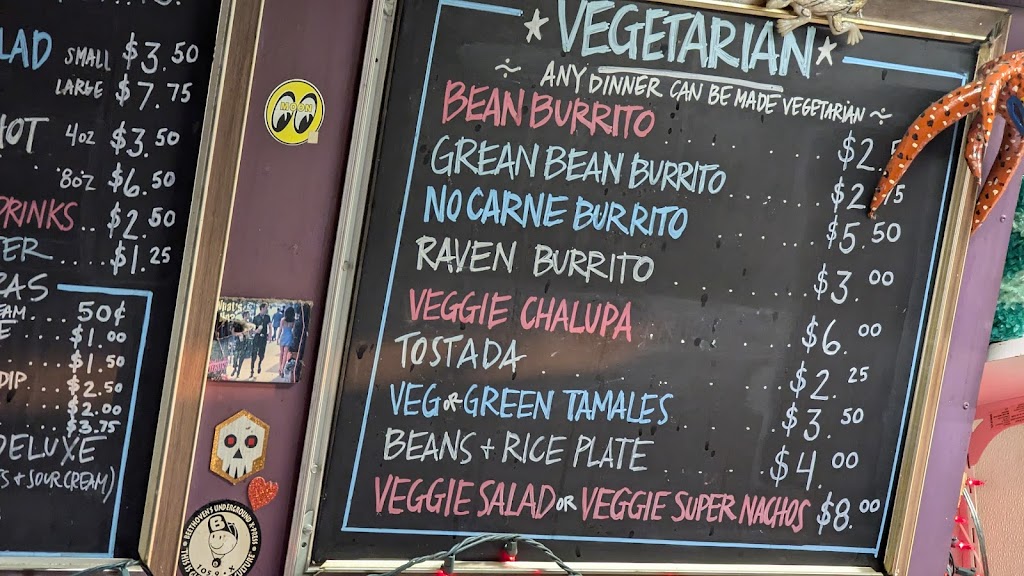 SMALL $3.50
LARGE $7.75
4oz $3.50
8oz $6.50
DRINKS .. $2.50
.... $1.25
50¢
$1.00
$1.50
DIP $2.50
$2.00
$3.75
DELUXE
+ SOUR CREAM)
MOON
BEETHOVEN'S UNDERGROUND
105.9 • X
VEGETARIAN
~ ANY DINNER CAN BE MADE VEGETARIAN ~
BEAN BURRITO
GREAN BEAN BURRITO
NO CARNE BURRITO $5.50
RAVEN BURRITO $3.00
VEGGIE CHALUPA $6.00
TOSTADA $2.25
VEG OR GREEN TAMALES $3.50
BEANS + RICE PLATE $4.00
VEGGIE SALAD OR VEGGIE SUPER NACHOS $8.00